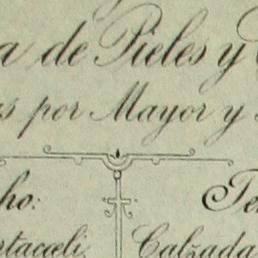 a de Pieles y
s por Mayor y
ho: Te
rtacœli. Calzada